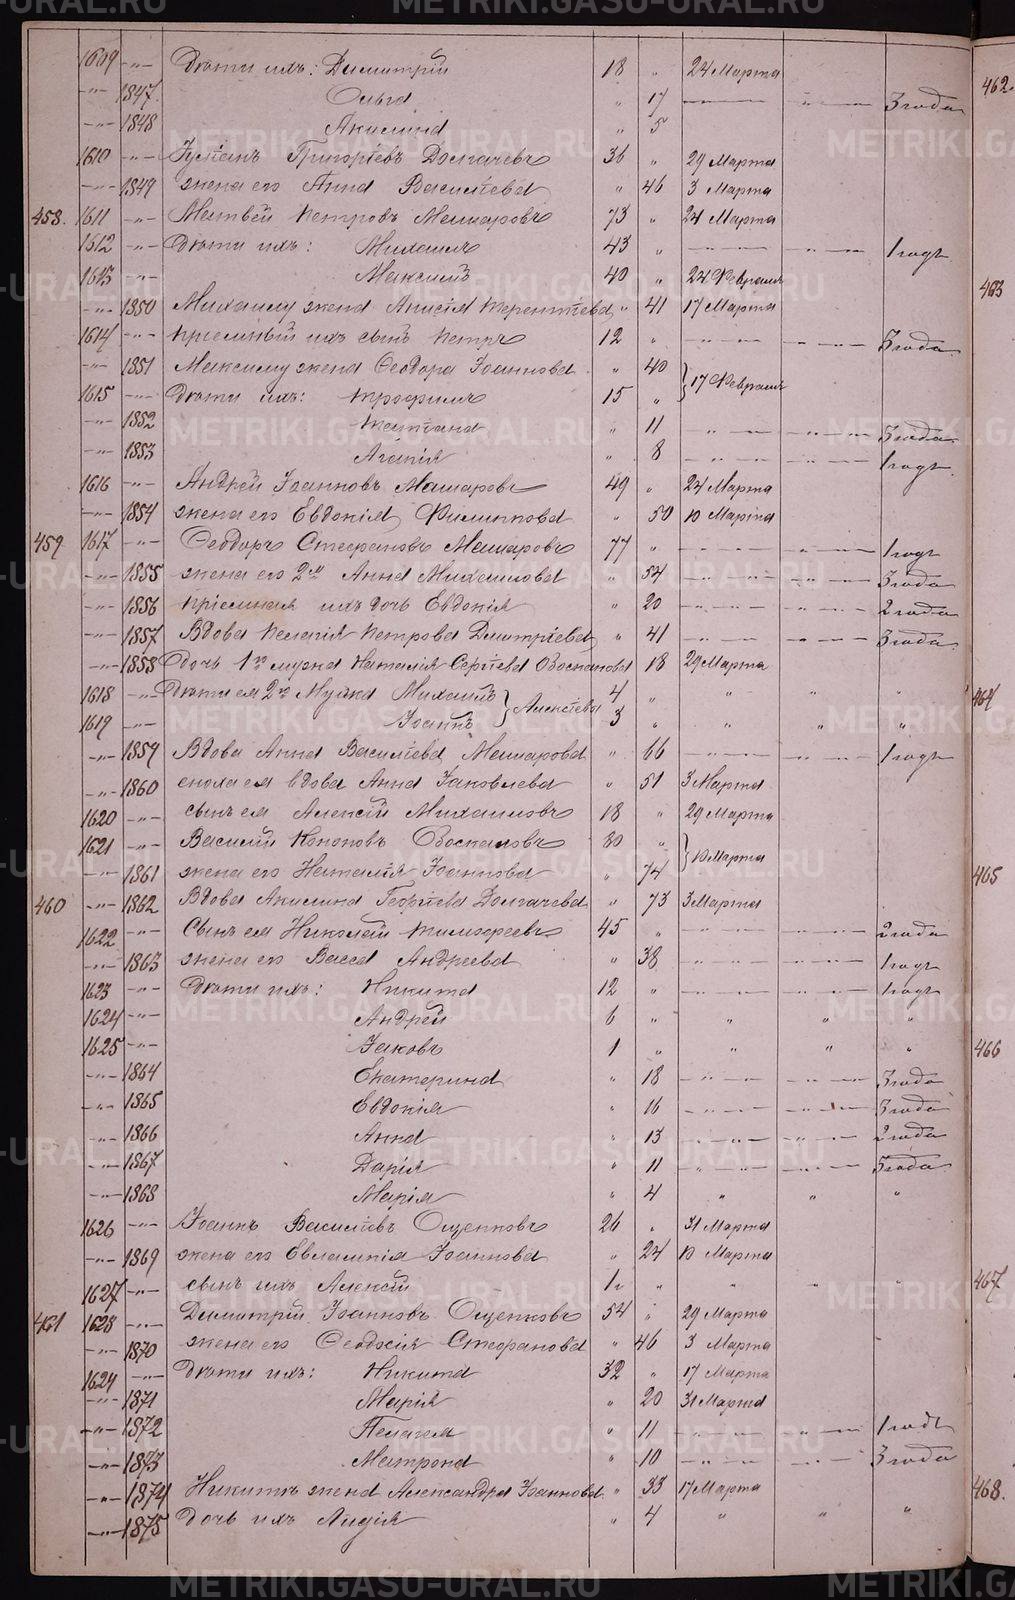 1609 -"- Дѣти ихъ: Димитрій 18 " 24 Марта
-"- 1847. Ольга " 17 — — — " — 3 года
-"- 1848 Акилина " 5
1610 -"- Григорьевъ Долгачевъ 36 " 29 Марта
-"- 1849 жена его Анна Васильева " 46 3 Марта
458. 1611 -"- Матвей Петровъ Машаровъ 73 " 24 Марта
1612 -"- Дѣти ихъ: Михаилъ 43 " — " — — " — 1 годъ
1613 -"- Максимъ 40 " 24 Февраля
-"- 1850 Михаилу жена Анисія Терентіева " 41 17 Марта
1614 -"- пріемный ихъ сынъ Петръ 12 " — " — — " — 3 года
-"- 1851 Максиму жена Ѳеодора Іоаннова " 40 } 17 Февраля
1615 -"- Дѣти ихъ: Трофимъ 15 "
-"- 1852 Татіана " 11 — " — — " — 3 года
-"- 1853 Агапія " 8 — " — — " — 1 годъ.
1616 -"- Андрей Іоанновъ Машаровъ 49 " 24 Марта
-"- 1854 жена его Евдокія Филиппова " 50 10 Марта
459 1617 -"- Ѳеодоръ Стефановъ Машаровъ 77 " — " — — " — 1 годъ
-"- 1855 жена его 2я Анна Михаилова " 54 — " — — " — 3 года
-"- 1856 пріемная ихъ дочь Евдокія " 20 — " — — " — 2 года
-"- 1857 Вдова Пелагія Петрова Димитріева " 41 — " — — " — 3 года
-"- 1858 Дочь 1го мужа Наталія Сергіева Овоспалова 18 29 Марта
1618 -"- Дѣти ея 2го Мужа Михаилъ } Алексіева 4 " " "
1619 -"- Іоаннъ 3 " " " "
-"- 1859 Вдова Анна Васильева Машарова " 66 — " — — " — 1 годъ
-"- 1860 сноха ея вдова Анна Іаковлева " 51 3 Марта
1620 -"- сынъ ея Алексій Михаиловъ 18 " 29 Марта
1621 -"- Василій Кононовъ 80 " } 10 Марта
-"- 1861 жена его Наталія Іоаннова " 74
460 -"- 1862 Вдова Акилина Георгіева Долгачева " 73 3 Марта
1622 -"- Сынъ ея Николай Тимофеевъ 45 " — " — — " — 2 года
-"- 1863 жена его Васса Андреева " 38 — " — — " — 1 годъ
1623 -"- Дѣти ихъ: Никита 12 " — " — — " — 1 годъ
1624 -"- Андрей 6 " " " "
1625 -"- Іаковъ 1 " " " "
-"- 1864 Екатерина " 18 — " — — " — 3 года
-"- 1865 Евдокія " 16 — " — — " — 3 года
-"- 1866 Анна " 13 — " — — " — 2 года
-"- 1867 Дарія " 11 — " — — " — 3 года
-"- 1868 Марія " 4 " " "
1626 -"- Іоаннъ Васильевъ Ощепковъ 26 " 31 Марта
-"- 1869 жена его Евлампія Іоаннова " 24 10 Марта
1627 -"- сынъ ихъ Алексій " " "
461 1628 -"- Димитрій Іоанновъ Ощепковъ 54 " 29 Марта
-"- 1870 жена его Ѳеодосія Стефанова " 46 3 Марта
1624 -"- Дѣти ихъ: Никита 32 " 17 Марта
-"- 1871 Марія " 20 31 Марта
-"- 1872 Пелагея " 11 — " — — " — 1 годъ
-"- 1873 Матрона " 10 — " — — " — 3 года
-"- 1874 Никитѣ жена Александра Іоаннова " 33 17 Марта
-"- 1875 Дочь ихъ Лидія " 4 " " "
462.
463
464
465
466
467
468.
METRIKI.GASO-URAL.RU